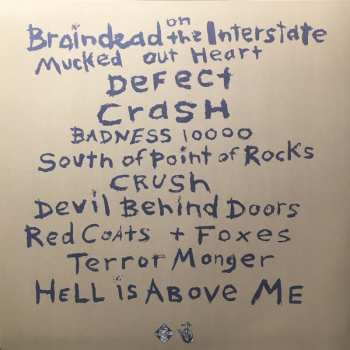 Braindead on the Interstate
Mucked out Heart
Defect
Crash
BADNESS 10000
South of Point of Rocks
CRUSH
Devil Behind Doors
Red Coats + Foxes
Terror Monger
HELL is ABOVE ME